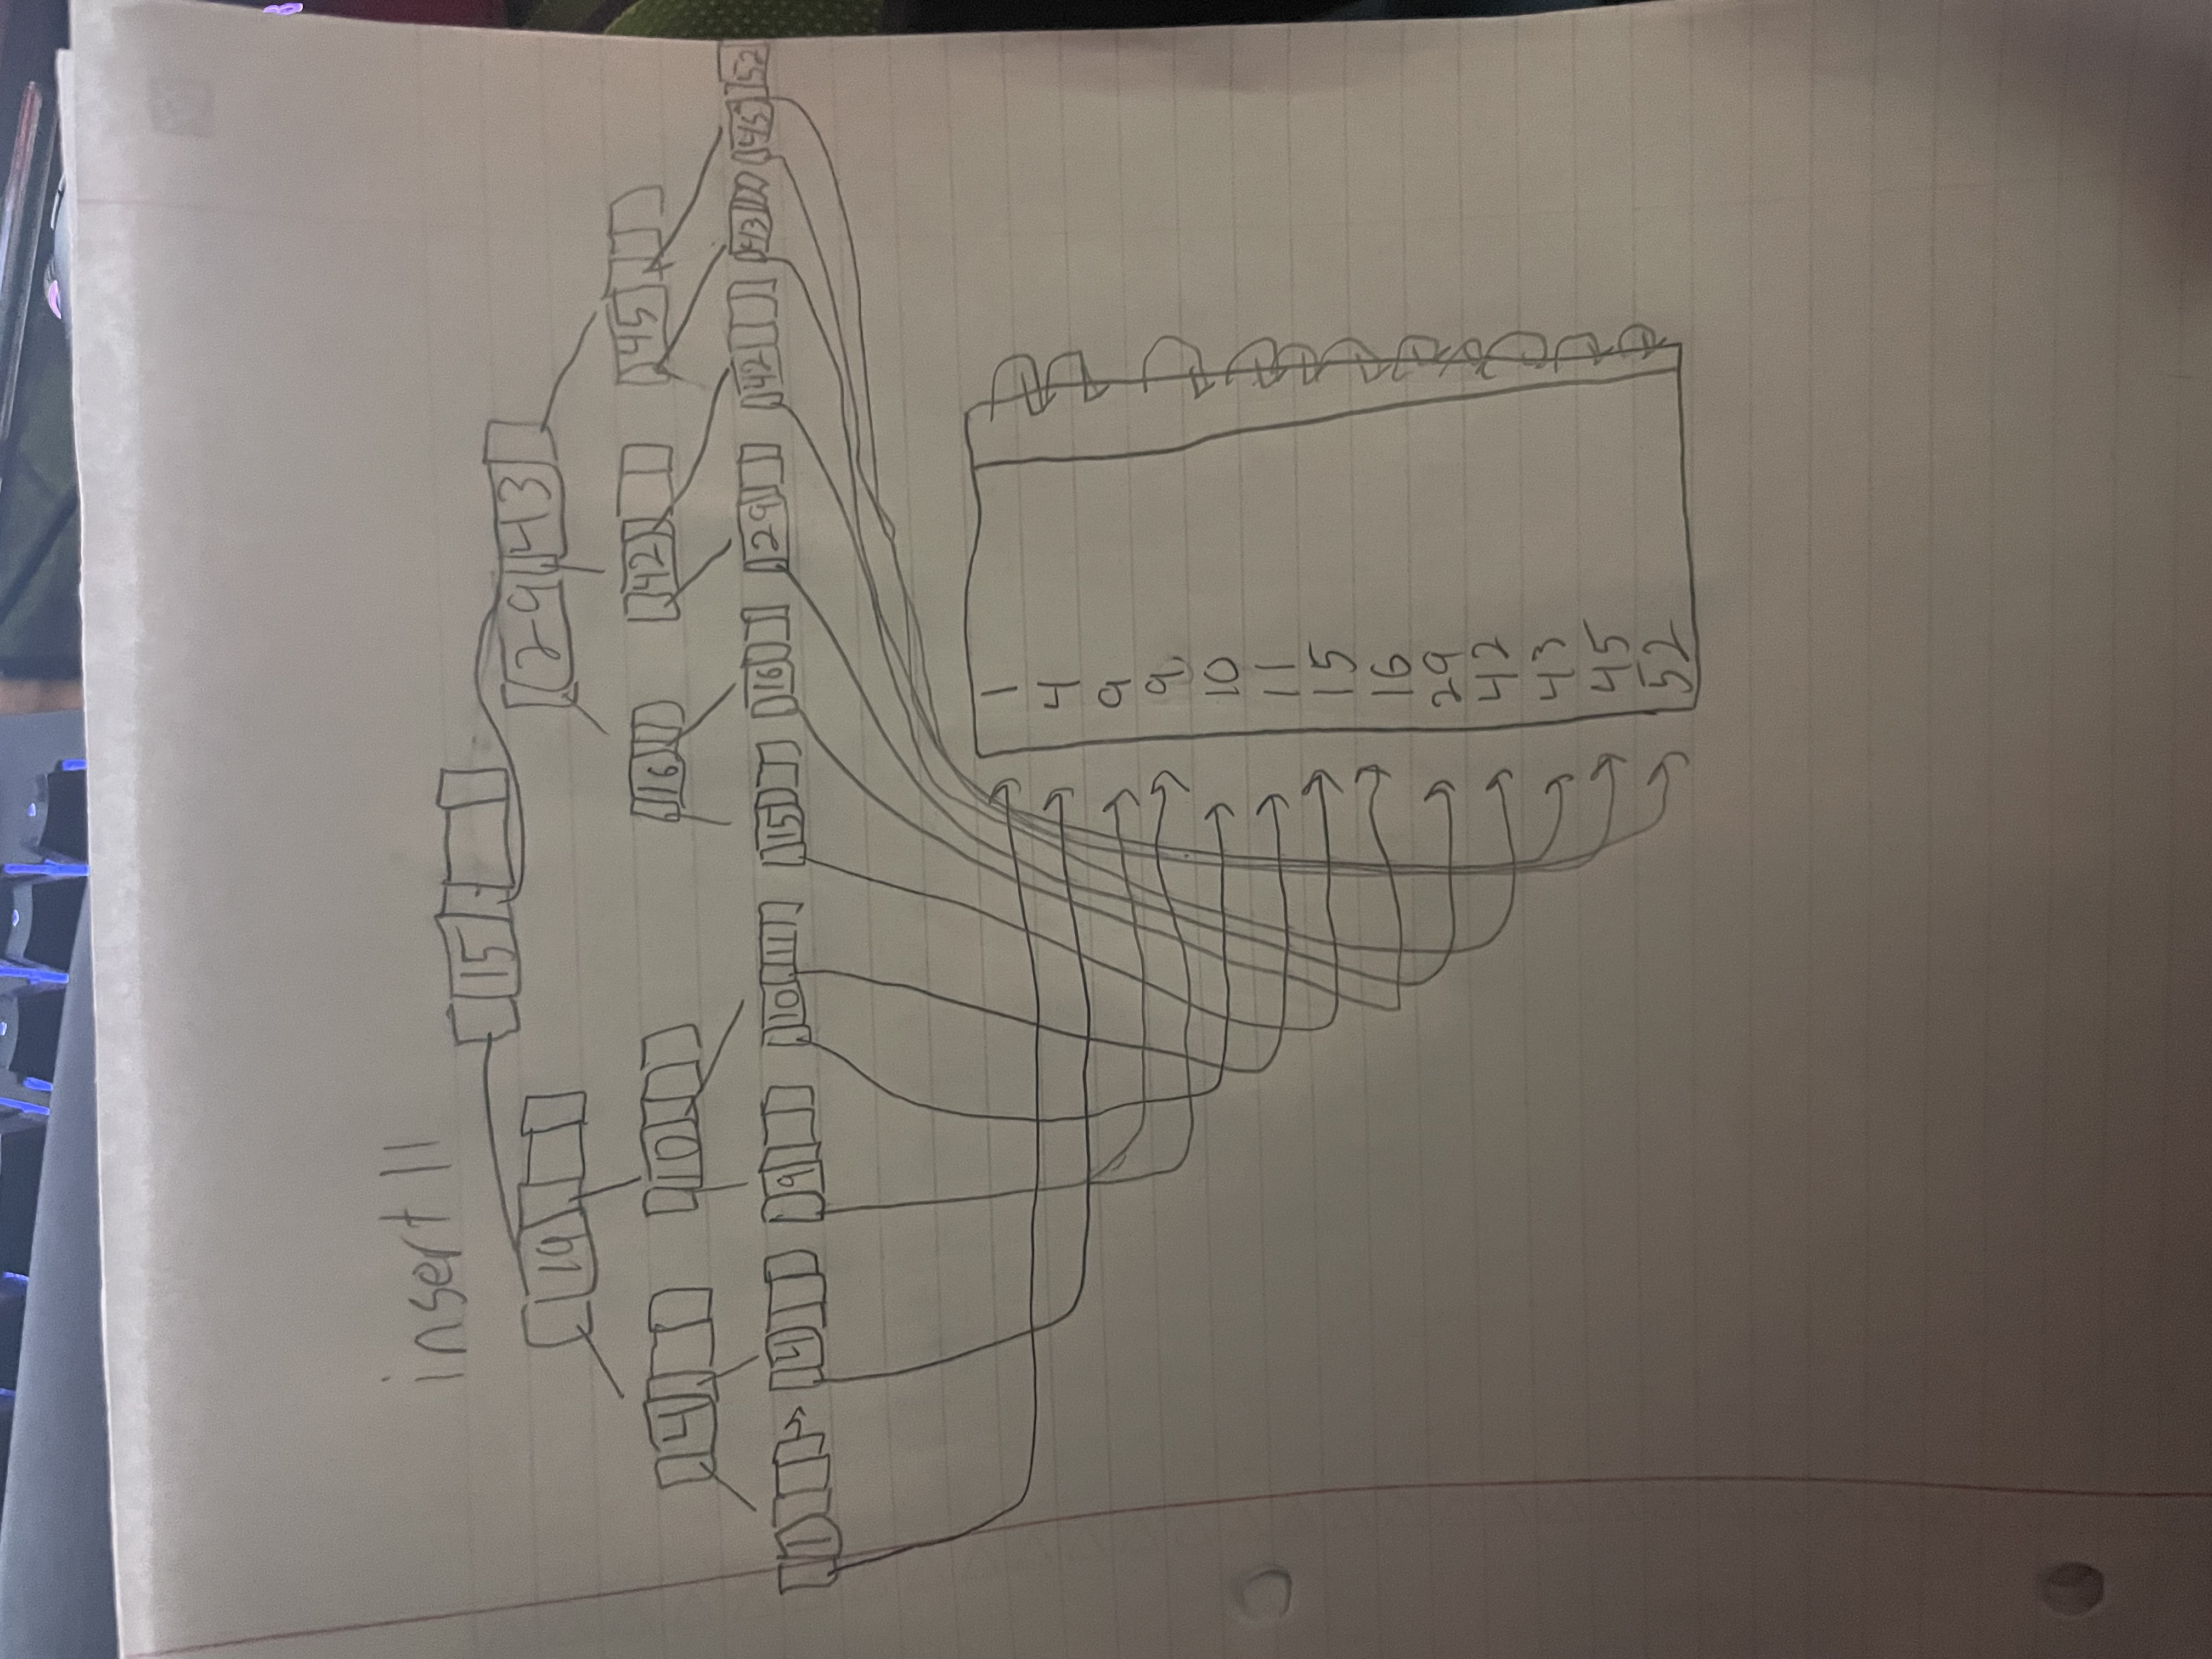 insert 11
15
29 43
4 10 16 42 45
1 4 9 10 11 15 16 29 42 43 45 52
1
4
9
9
10
11
15
16
29
42
43
45
52